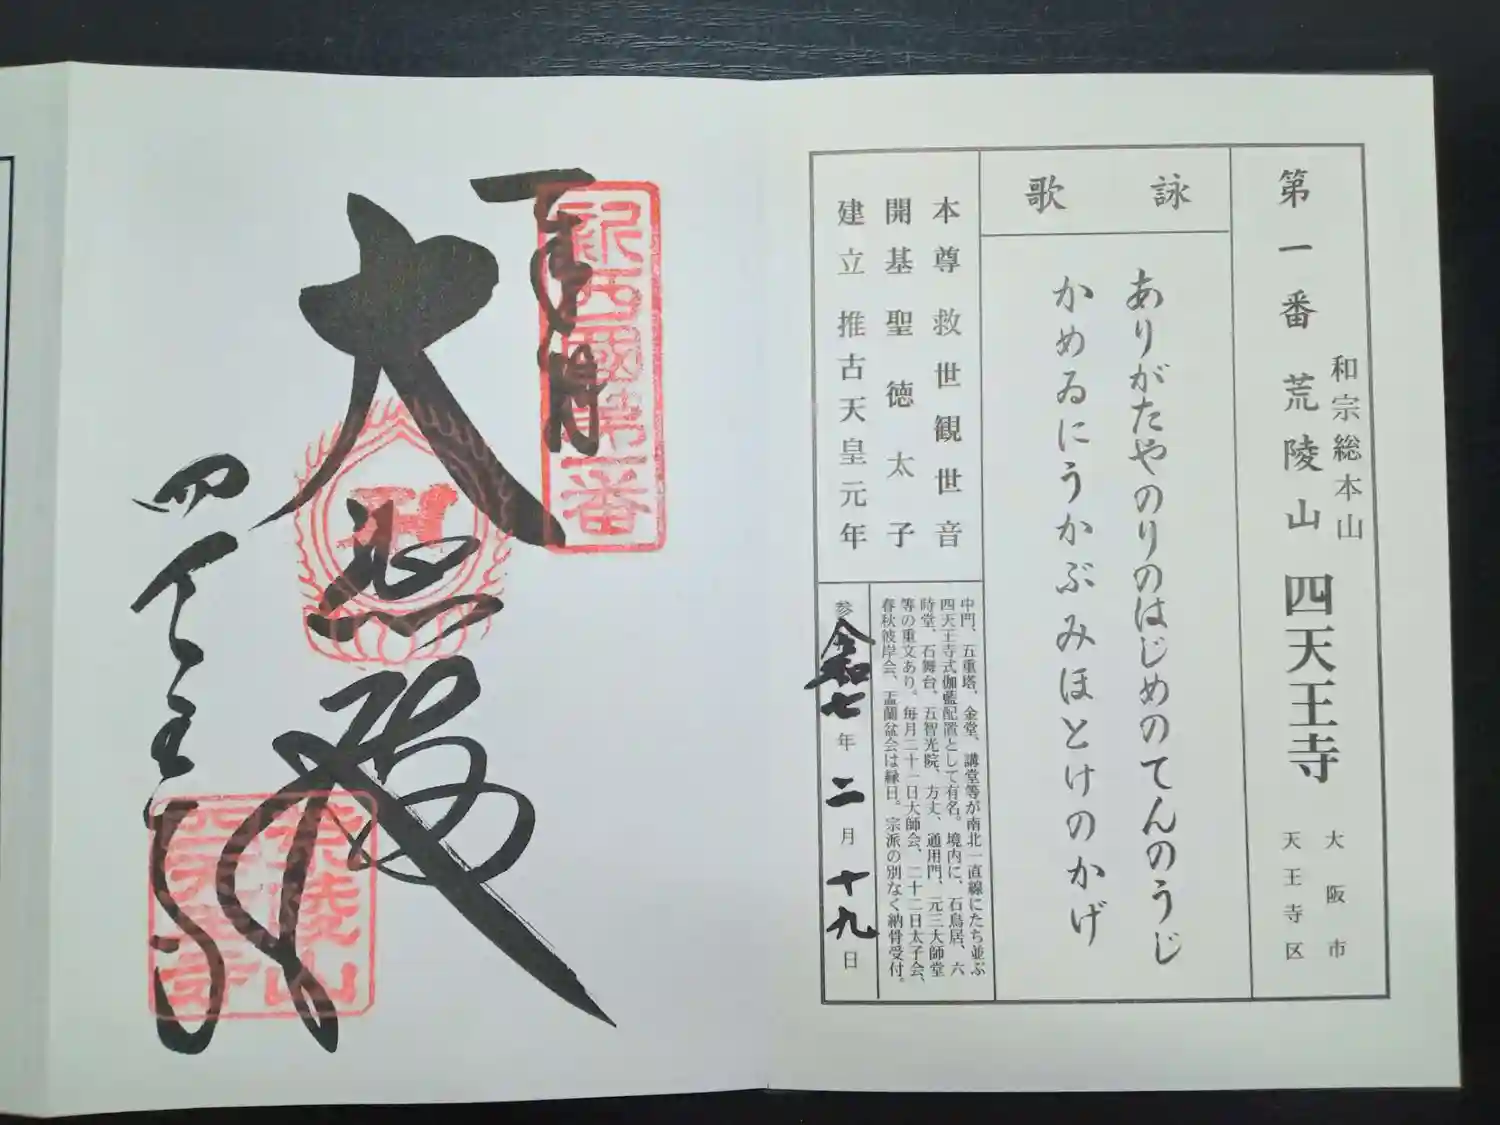 第一番 荒陵山 四天王寺
和宗総本山
大阪市
天王寺区
詠歌
ありがたやのりのはじめのてんのうじ
かめゐにうかぶみほとけのかげ
本尊 救世観世音
開基 聖徳太子
建立 推古天皇元年
中門、五重塔、金堂、講堂等が南北一直線にたち並ぶ
四天王寺式伽藍配置として有名。境内に、石鳥居、六
時堂、石舞台、五智光院、方丈、通用門、元三大師堂
等の重文あり。毎月二十一日大師会、二十二日太子会、
春秋彼岸会、盂蘭盆会は縁日。宗派の別なく納骨受付。
参 令和七年二月十九日
新西國第一番
奉拝
大悲殿
四天王寺
荒陵山
四天王寺